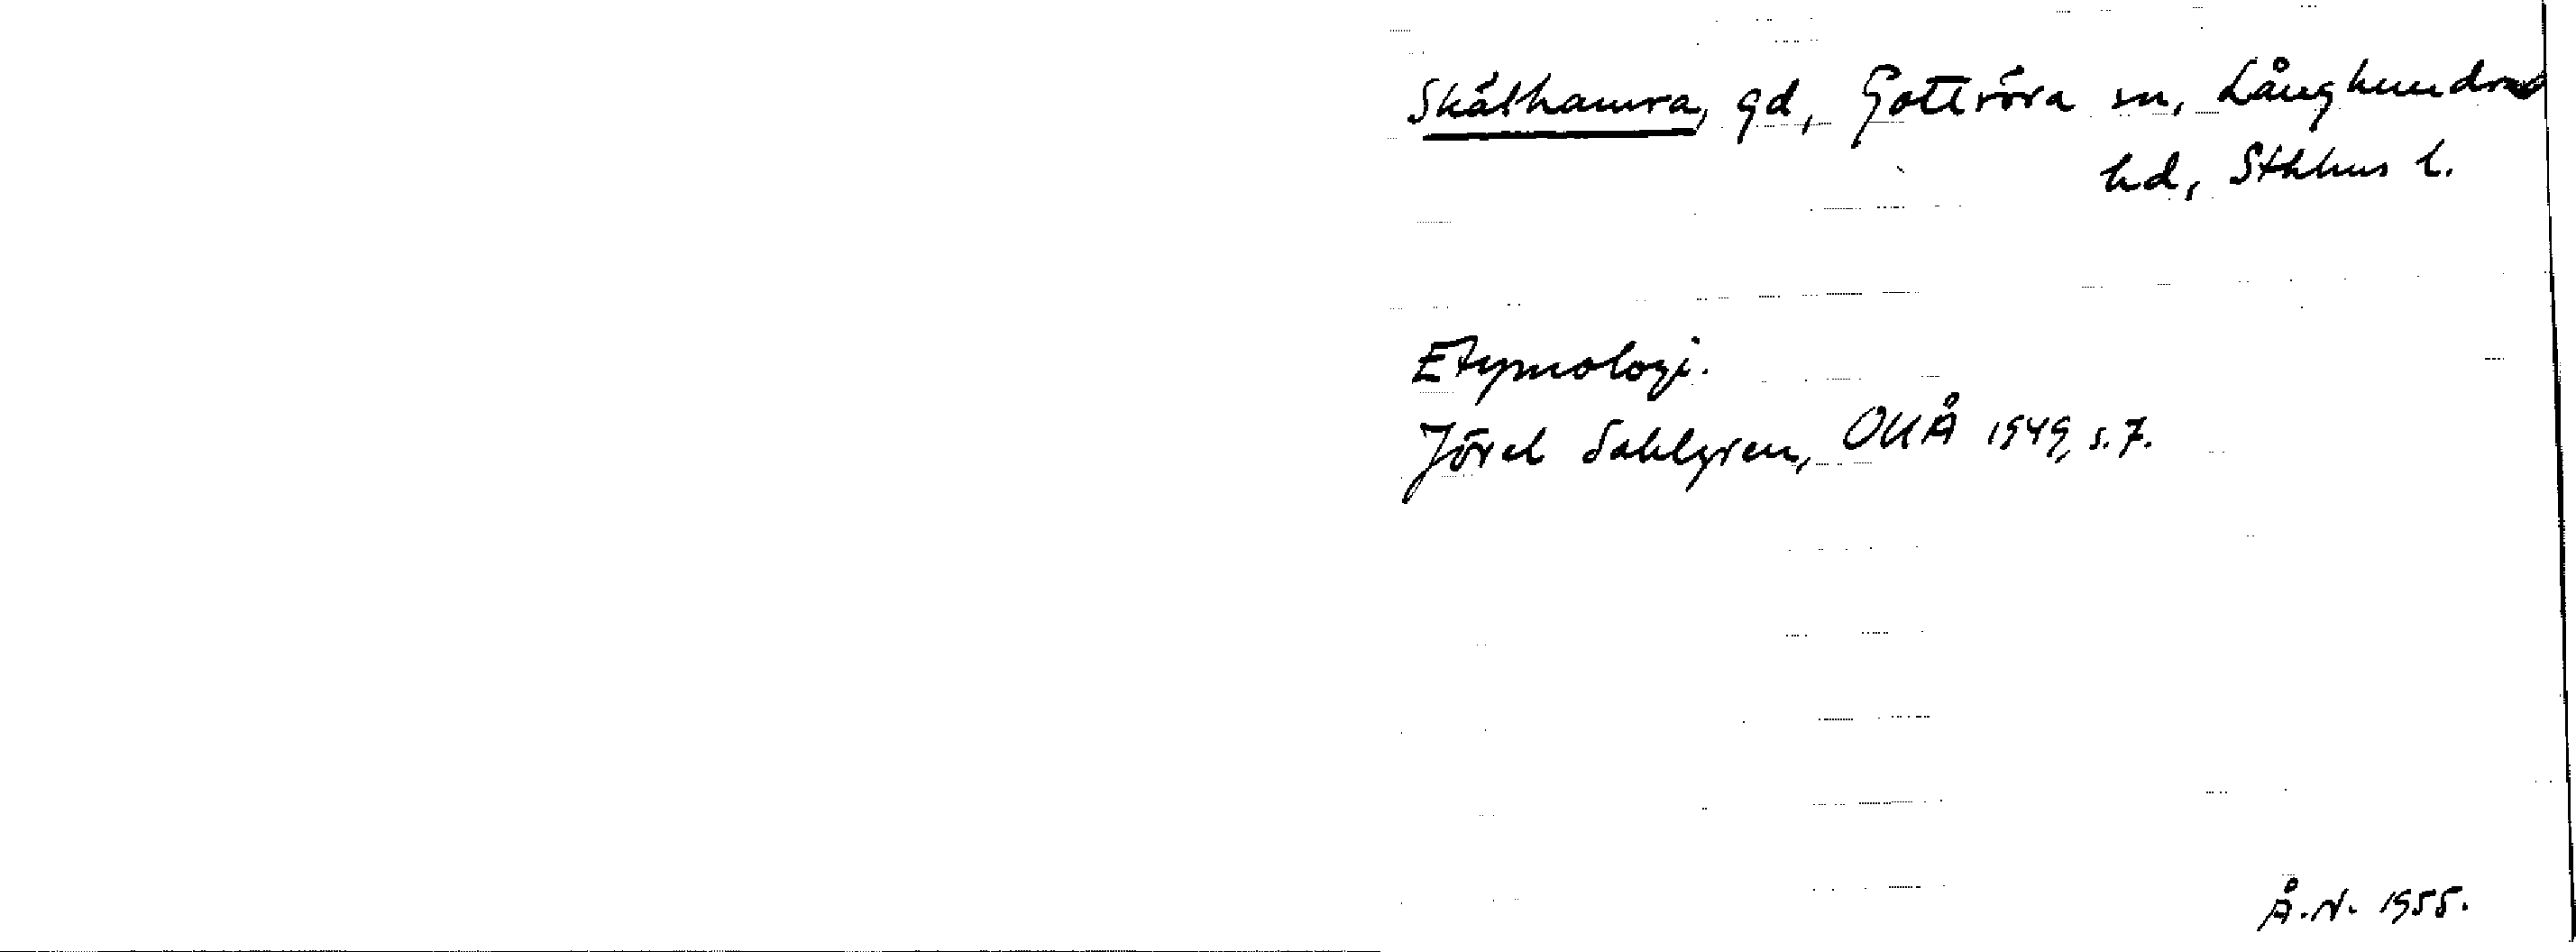 Skålhamra, gd, Gottröra sn, Långhundra
hd, Sthlms l.
Etymologi.
Jöran Sahlgren, OUÅ 1949, s. 7.
Å.N. 1955.